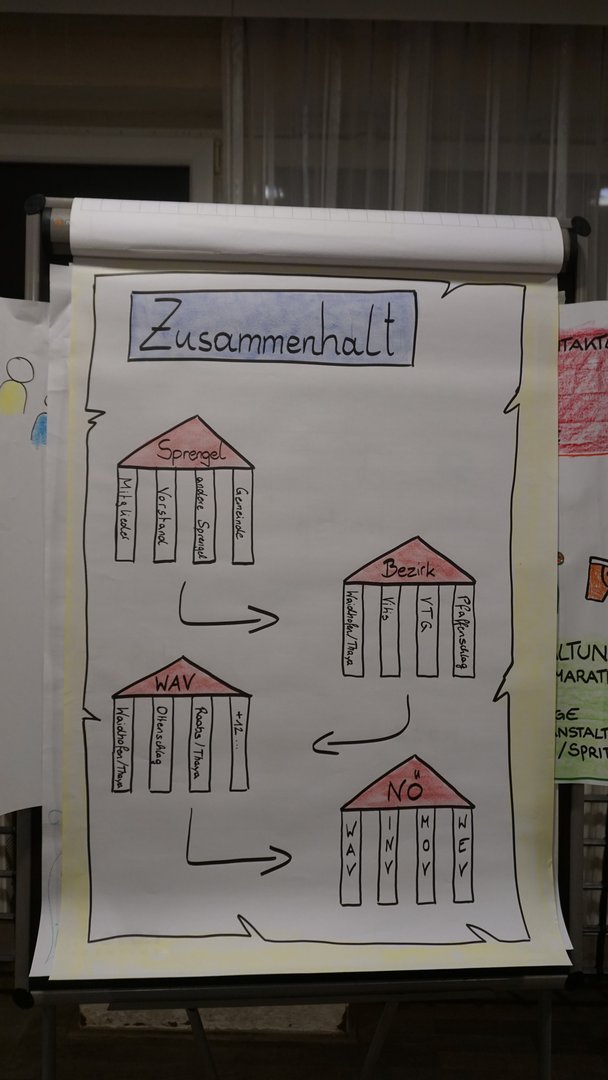 Zusammenhalt
Sprengel
Mitglieder
Vorstand
andere Sprengel
Gemeinde
Bezirk
Waidhofen/Thaya
Vitis
VTG
Pfaffenschlag
WAV
Waidhofen/Thaya
Ottenschlag
Raabs/Thaya
+12...
NÖ
WAV
INV
MOV
WEV
TAKT
LTUN
MARAT
GE
NSTALT
/SPRIT